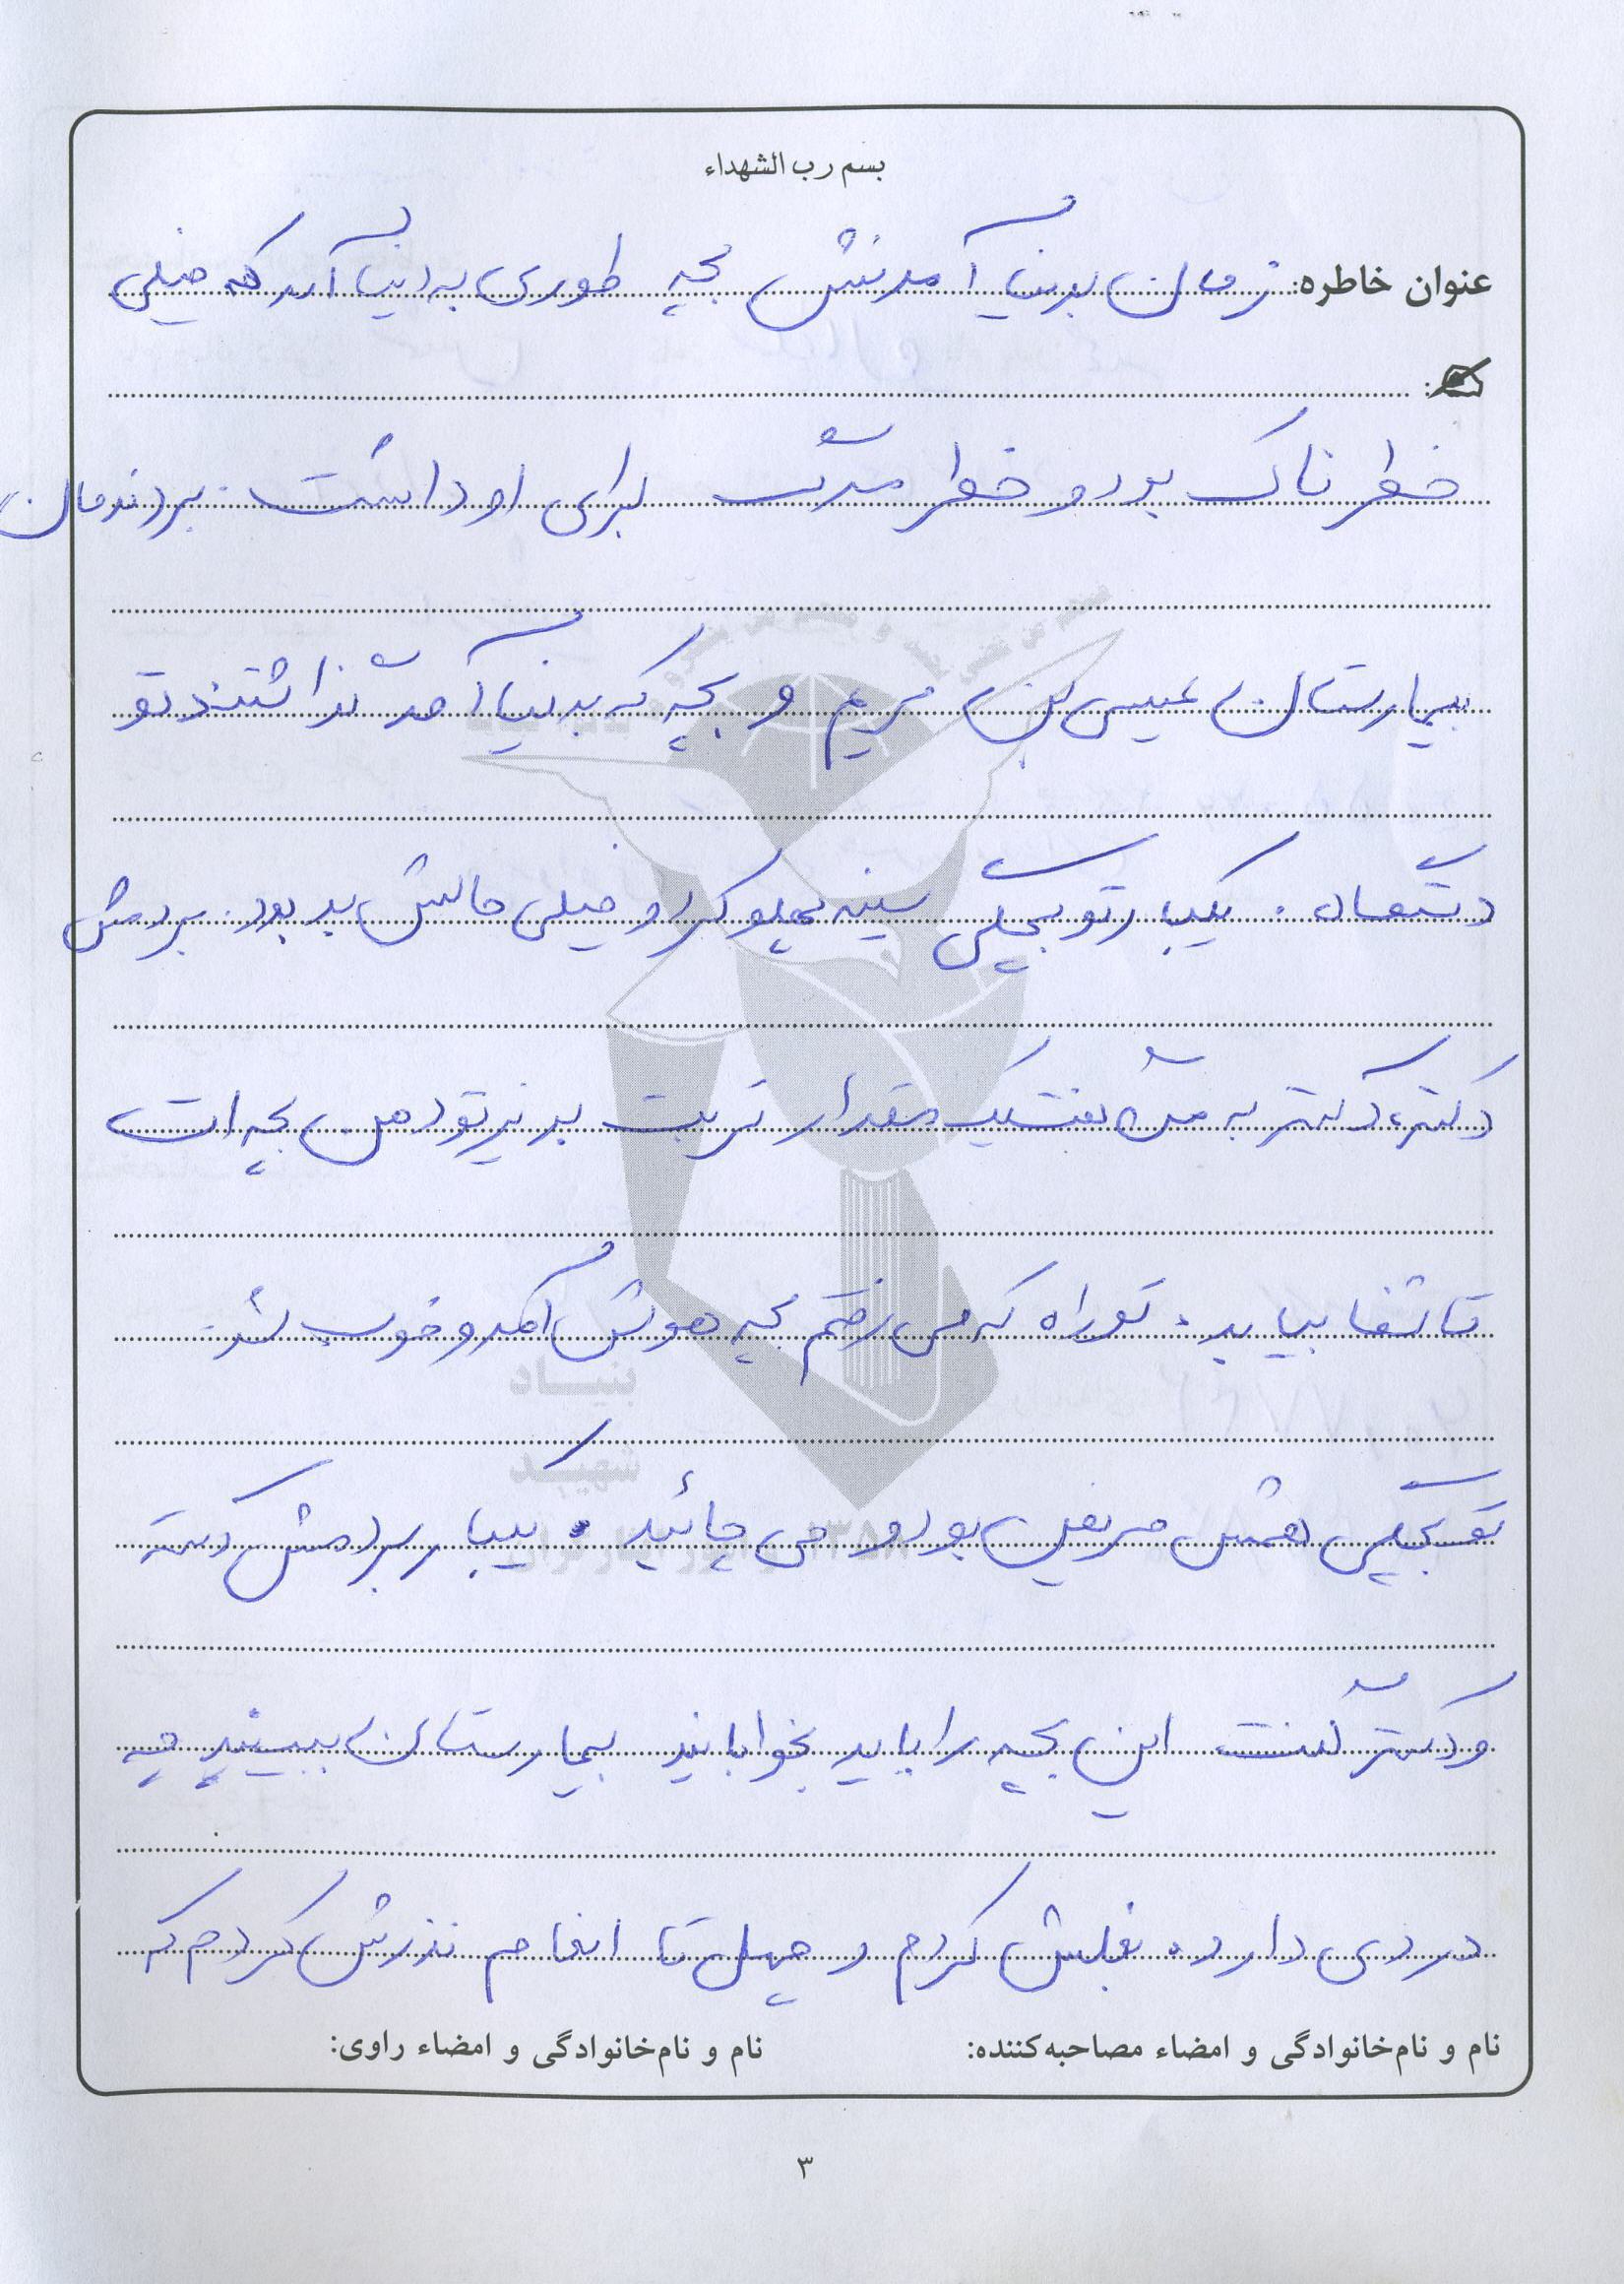 بسم رب الشهداء
عنوان خاطره: زمان بدنیا آمدنش بچه طوری به دنیا آمد که خیلی
خطرناک بود و خطر مرگ برای او داشت. بردندمان
بیمارستان عیسی بن مریم و بچه که بدنیا آمد گذاشتند تو
دستگاه. یکبار تو بچگی سینه پهلو کرد و خیلی حالش بد بود. بردمش
دکتر، دکتر به من گفت یک مقدار تربت بریزید تو دهن بچه ات
تا شفا بیابد. تو راه که می رفتم بچه هوش آمد و خوب شد.
تو بچگی همش مریض بود و می چائید. یکبار بردمش دکتر
و دکتر گفت این بچه را باید بخوابانید بیمارستان ببینید چه
دردی دارد. بغلش کردم و چهل تا امام نذرش کردم که
نام و نام‌خانوادگی و امضاء مصاحبه‌کننده:
نام و نام‌خانوادگی و امضاء راوی:
بنیاد
شهید
۳